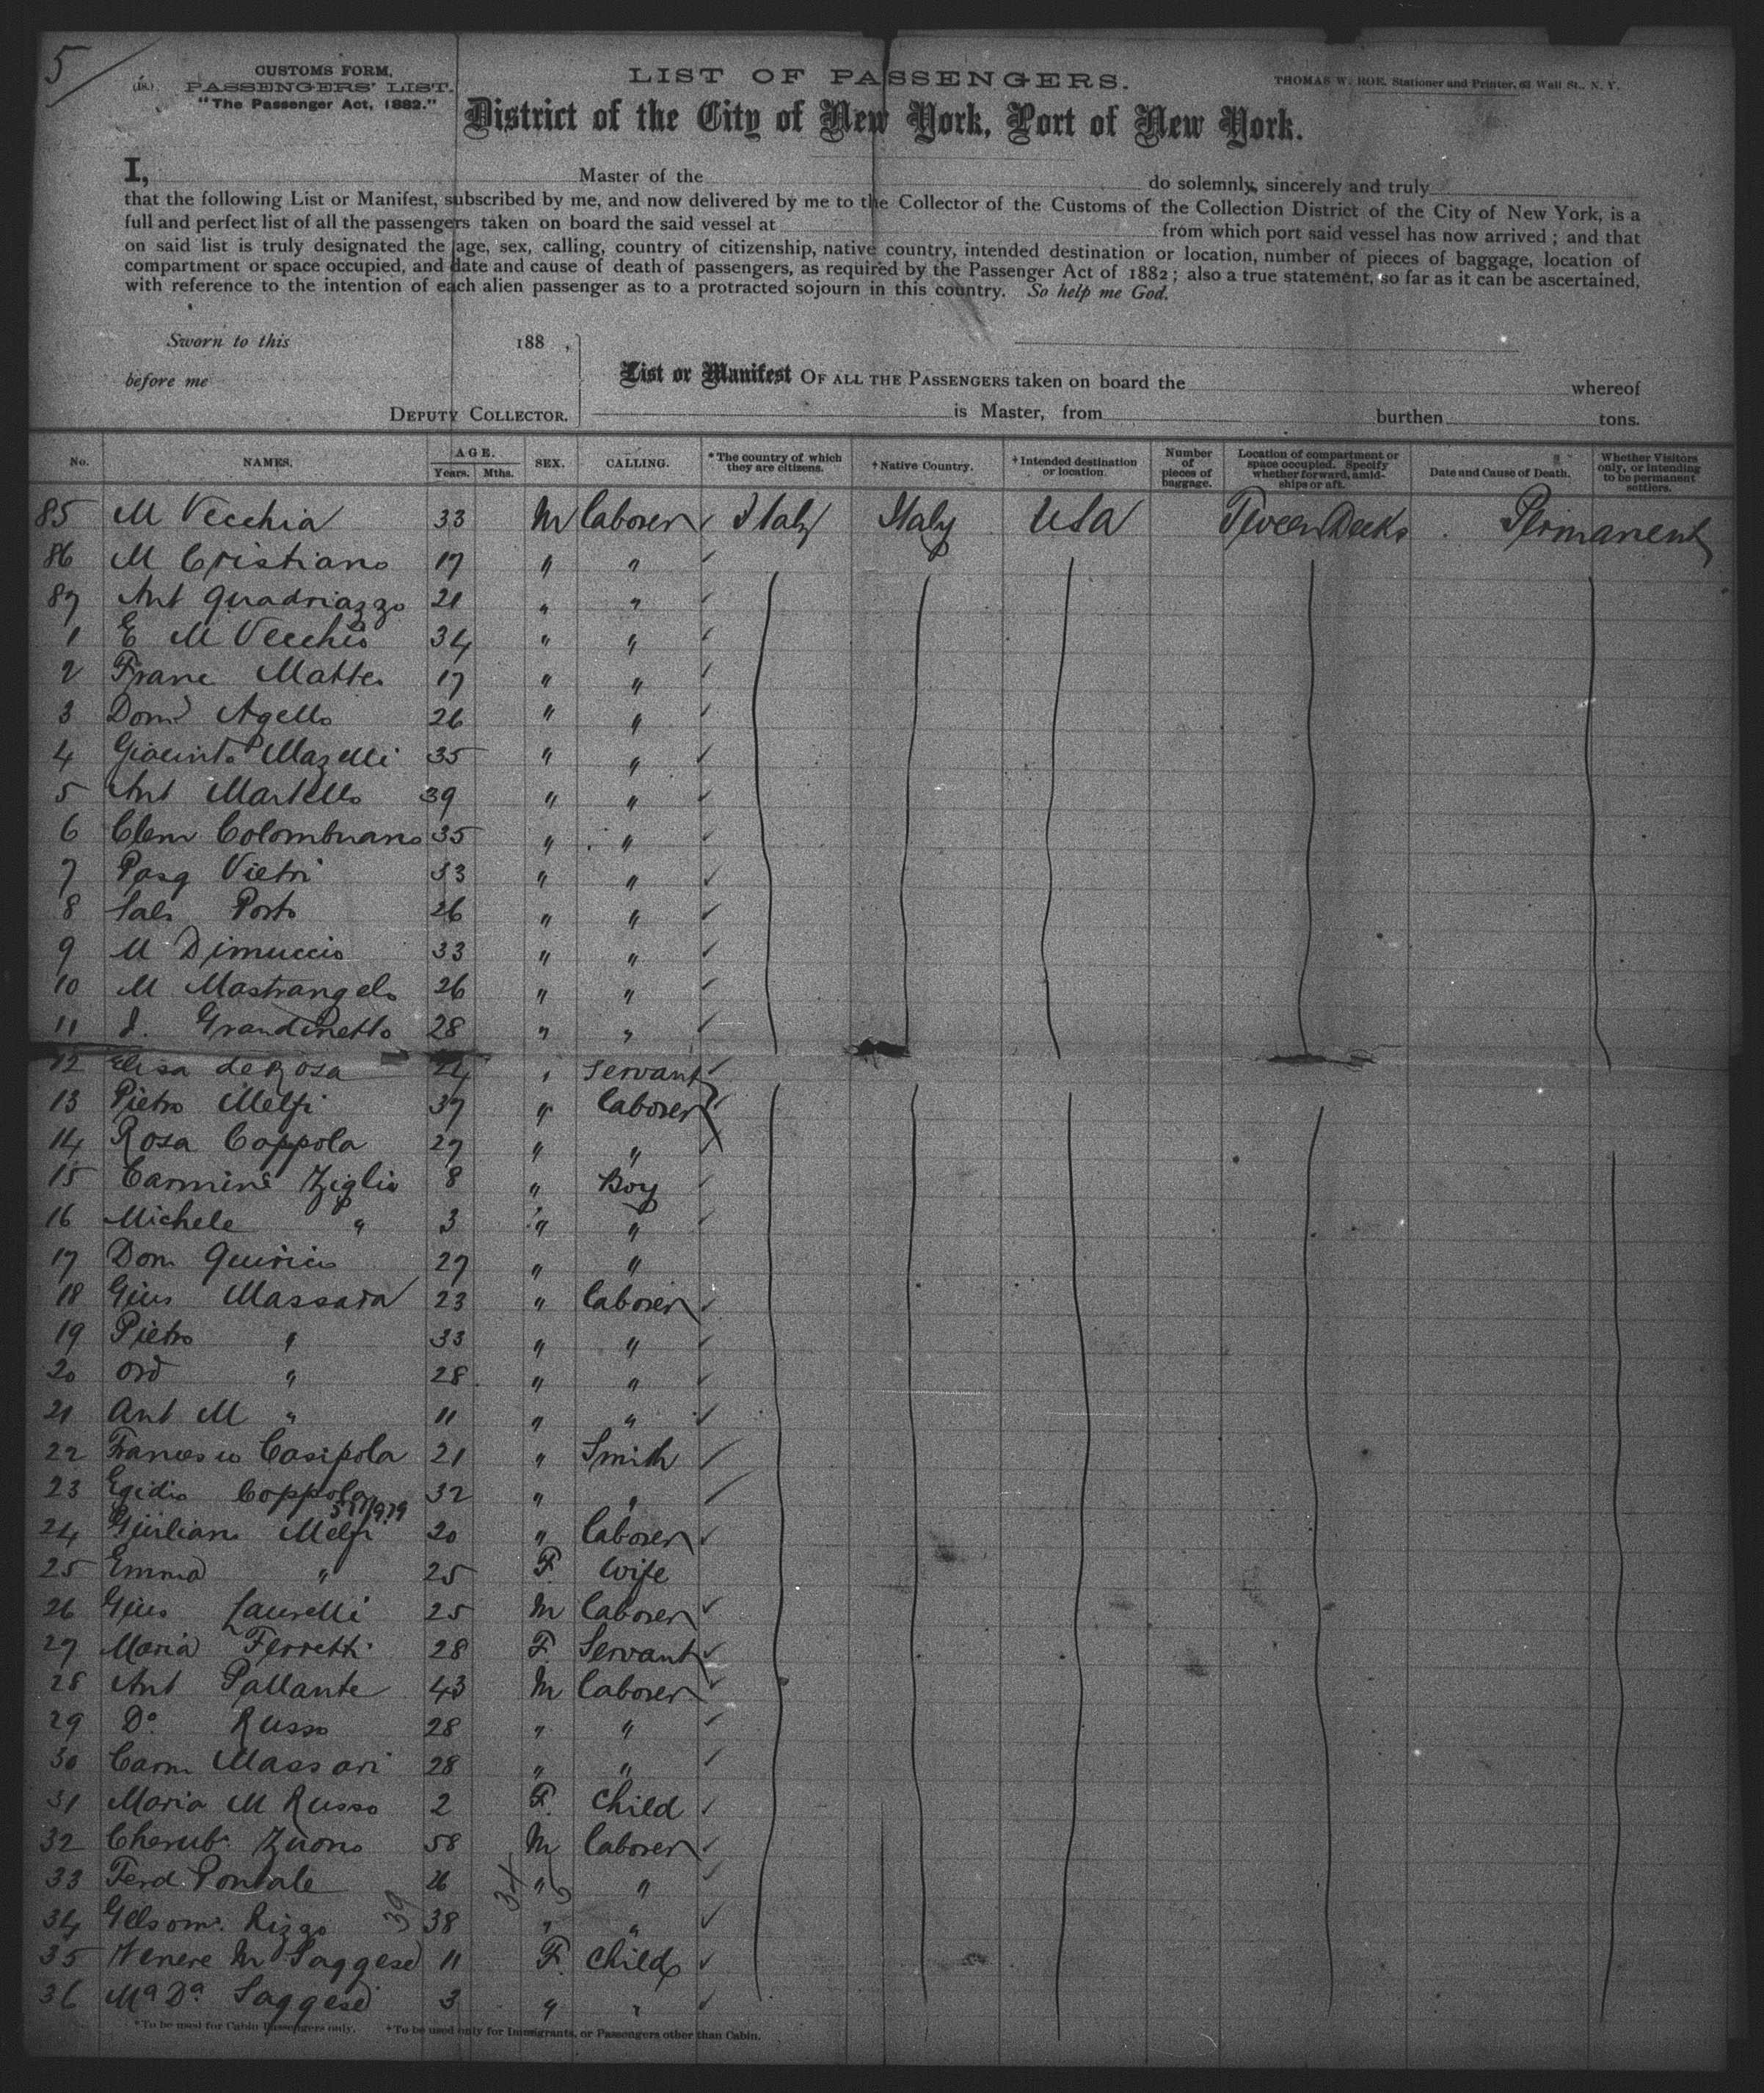 5
(is.)
CUSTOMS FORM,
PASSENGERS' LIST.
"The Passenger Act, 1882."
LIST OF PASSENGERS.
THOMAS W. ROE, Stationer and Printer, 63 Wall St., N. Y.
District of the City of New York, Port of New York.
I, Master of the do solemnly, sincerely and truly
that the following List or Manifest, subscribed by me, and now delivered by me to the Collector of the Customs of the Collection District of the City of New York, is a
full and perfect list of all the passengers taken on board the said vessel at from which port said vessel has now arrived; and that
on said list is truly designated the age, sex, calling, country of citizenship, native country, intended destination or location, number of pieces of baggage, location of
compartment or space occupied, and date and cause of death of passengers, as required by the Passenger Act of 1882; also a true statement, so far as it can be ascertained,
with reference to the intention of each alien passenger as to a protracted sojourn in this country. So help me God.
Sworn to this 188 .
before me
DEPUTY COLLECTOR.
List or Manifest OF ALL THE PASSENGERS taken on board the whereof
is Master, from burthen tons.
No. NAMES. AGE. Years. Mths. SEX. CALLING. *The country of which they are citizens. †Native Country. †Intended destination or location. Number of pieces of baggage. Location of compartment or space occupied. Specify whether forward, amidships or aft. Date and Cause of Death. Whether Visitors only, or intending to be permanent settlers.
85 M Vecchia 33 M laborer Italy Italy USA Tween Decks Permanent
86 M Cristiano 17 " "
87 Ant Quadriazzo 21 " "
1 E M Vecchio 34 " "
2 Franc Matteo 17 " "
3 Domo Agello 26 " "
4 Giacinto Mazelli 35 " "
5 Ant Martello 39 " "
6 Clem Colombrano 35 " "
7 Pasq Vietri 33 " "
8 Salv Porto 26 " "
9 M Dimuccio 33 " "
10 M Mastrangelo 26 " "
11 J. Grandinetto 28 " "
12 Elisa de Rosa 24 " Servant
13 Pietro Melfi 37 " laborer
14 Rosa Coppola 27 " "
15 Carmine Ziglio 8 " Boy
16 Michele " 3 " "
17 Dom Quirico 27 " "
18 Gius Massara 23 " laborer
19 Pietro " 33 " "
20 Ord " 28 " "
21 Ant M " 11 " "
22 Francesco Casipola 21 " Smith
23 Egidio Coppola 32 " "
24 Giuliano Melfi 20 " laborer
25 Emma " 25 F. Wife
26 Gius Laurelli 25 M laborer
27 Maria Ferretti 28 F. Servant
28 Ant Pallante 43 M laborer
29 Do Russo 28 " "
30 Carm Massari 28 " "
31 Maria M Russo 2 F. Child
32 Cherub. Zuono 58 M laborer
33 Ferd. Pontale 26 " "
34 Gelsom. Rizzo 39 38 34 5 " "
35 Venere M Saggese 11 F. Child
36 Ma Da Saggese 3 " "
*To be used for Cabin Passengers only. †To be used only for Immigrants, or Passengers other than Cabin.